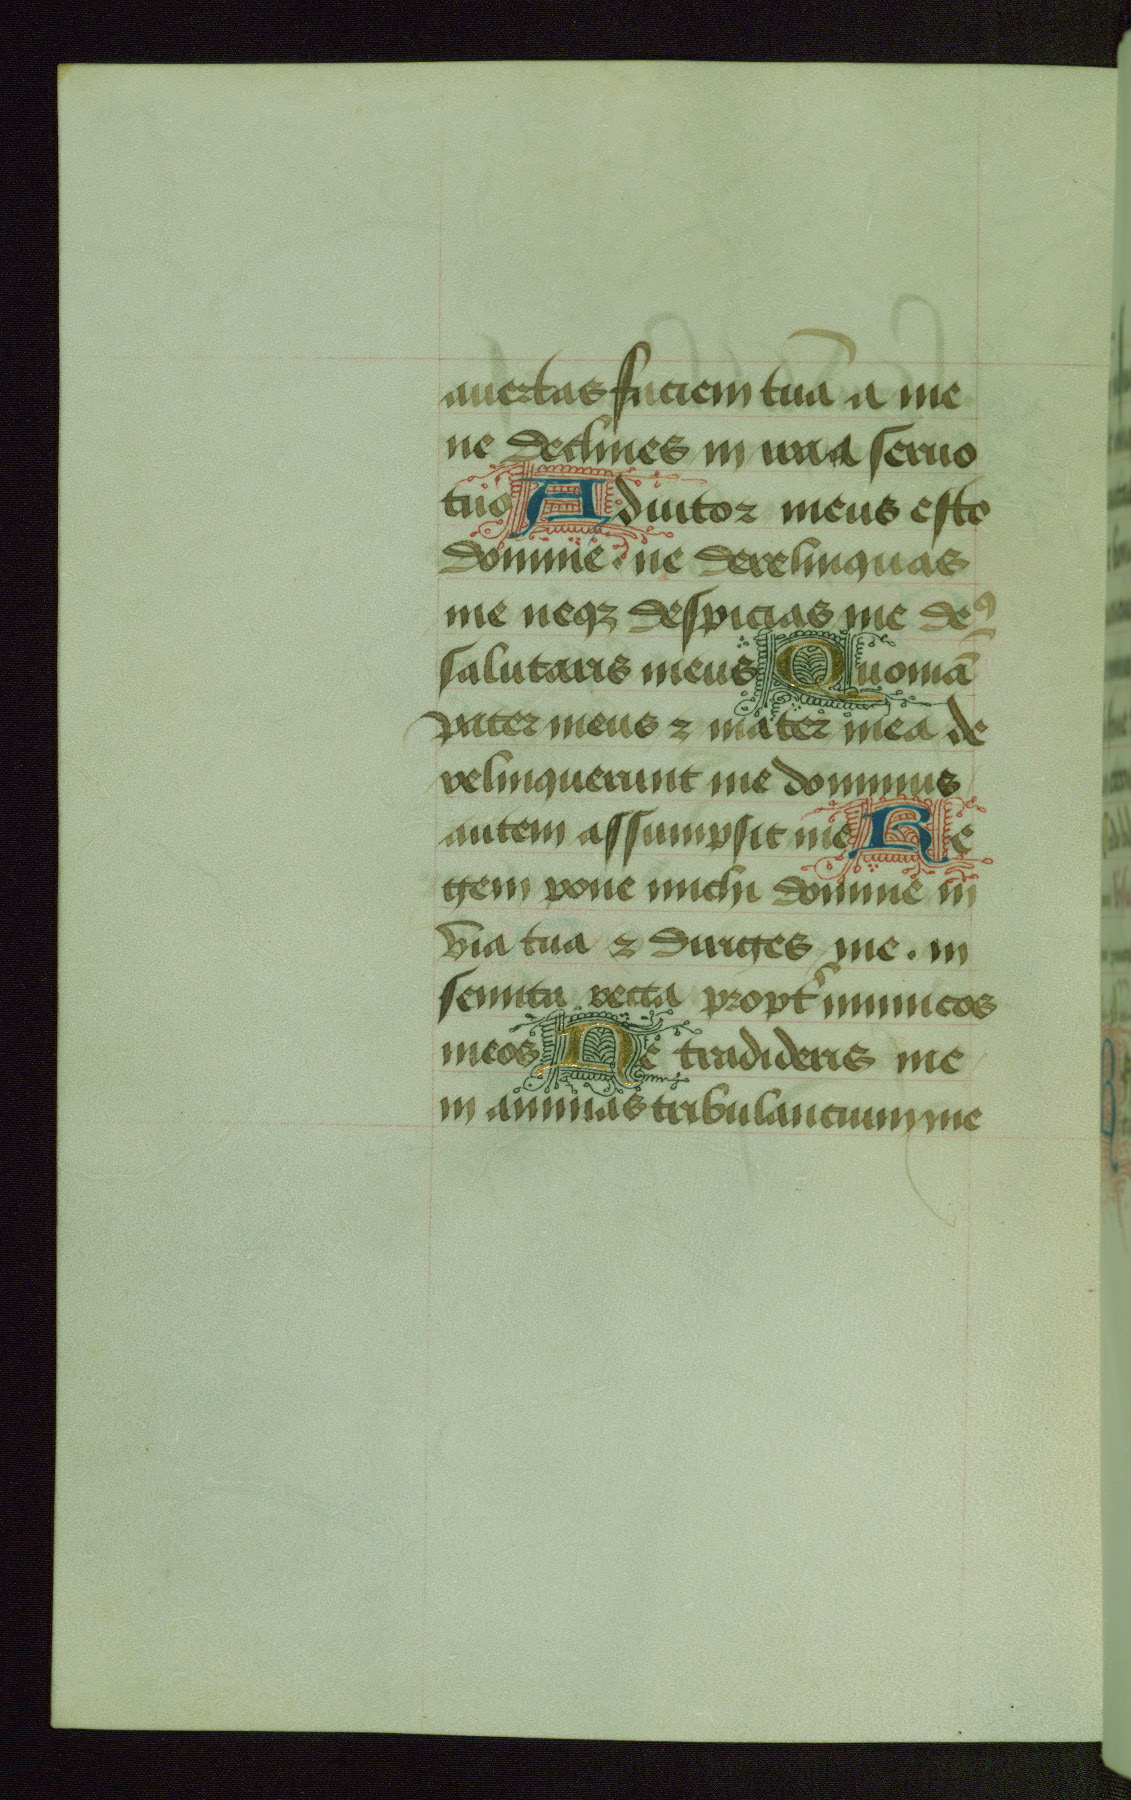 auertas faciem tuā a me
ne declines in ira a seruo
tuo Adiutor meus esto
domine . ne derelinquas
me neqꝫ despicias me deꝰ
salutaris meus Quoniā
pater meus ⁊ mater mea de
relinquerunt me dominus
autem assumpsit me Le
gem pone michi domine in
via tua ⁊ diriges me . in
semita recta propt̄ inimicos
meos Ne tradideris me
in animas tribulancium me